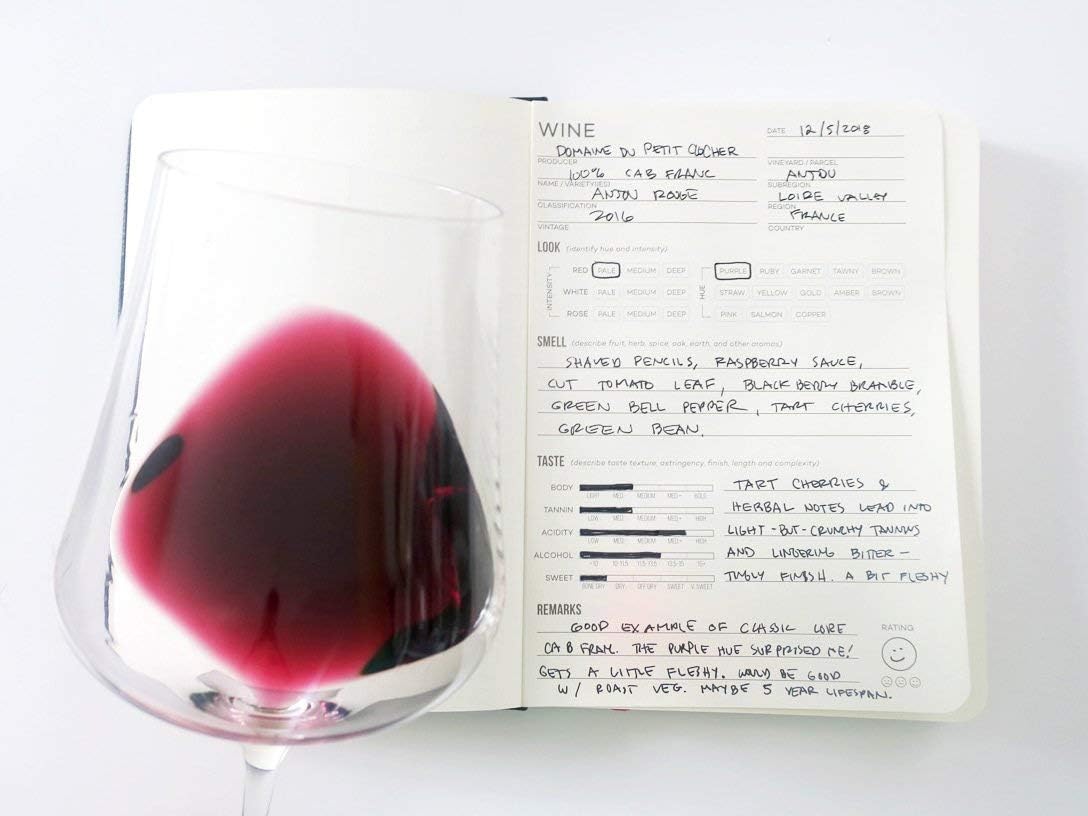 WINE
DATE 12/5/2018
DOMAINE DU PETIT CLOCHER
PRODUCER
VINEYARD / PARCEL
100% CAB FRANC
ANJOU
NAME / VARIETY(IES)
SUBREGION
ANJOU ROUGE
LOIRE VALLEY
CLASSIFICATION
REGION
2016
FRANCE
VINTAGE
COUNTRY
LOOK (identify hue and intensity)
INTENSITY
RED PALE MEDIUM DEEP
HUE
PURPLE RUBY GARNET TAWNY BROWN
WHITE PALE MEDIUM DEEP
STRAW YELLOW GOLD AMBER BROWN
ROSE PALE MEDIUM DEEP
PINK SALMON COPPER
SMELL (describe fruit, herb, spice, oak, earth, and other aromas)
SHAVED PENCILS, RASPBERRY SAUCE,
CUT TOMATO LEAF, BLACKBERRY BRAMBLE,
GREEN BELL PEPPER, TART CHERRIES,
GREEN BEAN.
TASTE (describe taste texture, astringency, finish, length and complexity)
BODY
LIGHT MED- MEDIUM MED+ BOLD
TANNIN
LOW MED- MEDIUM MED+ HIGH
ACIDITY
LOW MED- MEDIUM MED+ HIGH
ALCOHOL
<10 10-11.5 11.5-13.5 13.5-15 15+
SWEET
BONE DRY DRY OFF DRY SWEET V. SWEET
TART CHERRIES &
HERBAL NOTES LEAD INTO
LIGHT-BUT-CRUNCHY TANNINS
AND LINGERING BITTER-
TINGLY FINISH. A BIT FLESHY
REMARKS
GOOD EXAMPLE OF CLASSIC LOIRE
CAB FRAN. THE PURPLE HUE SURPRISED ME!
GETS A LITTLE FLESHY. WOULD BE GOOD
W/ ROAST VEG. MAYBE 5 YEAR LIFESPAN.
RATING